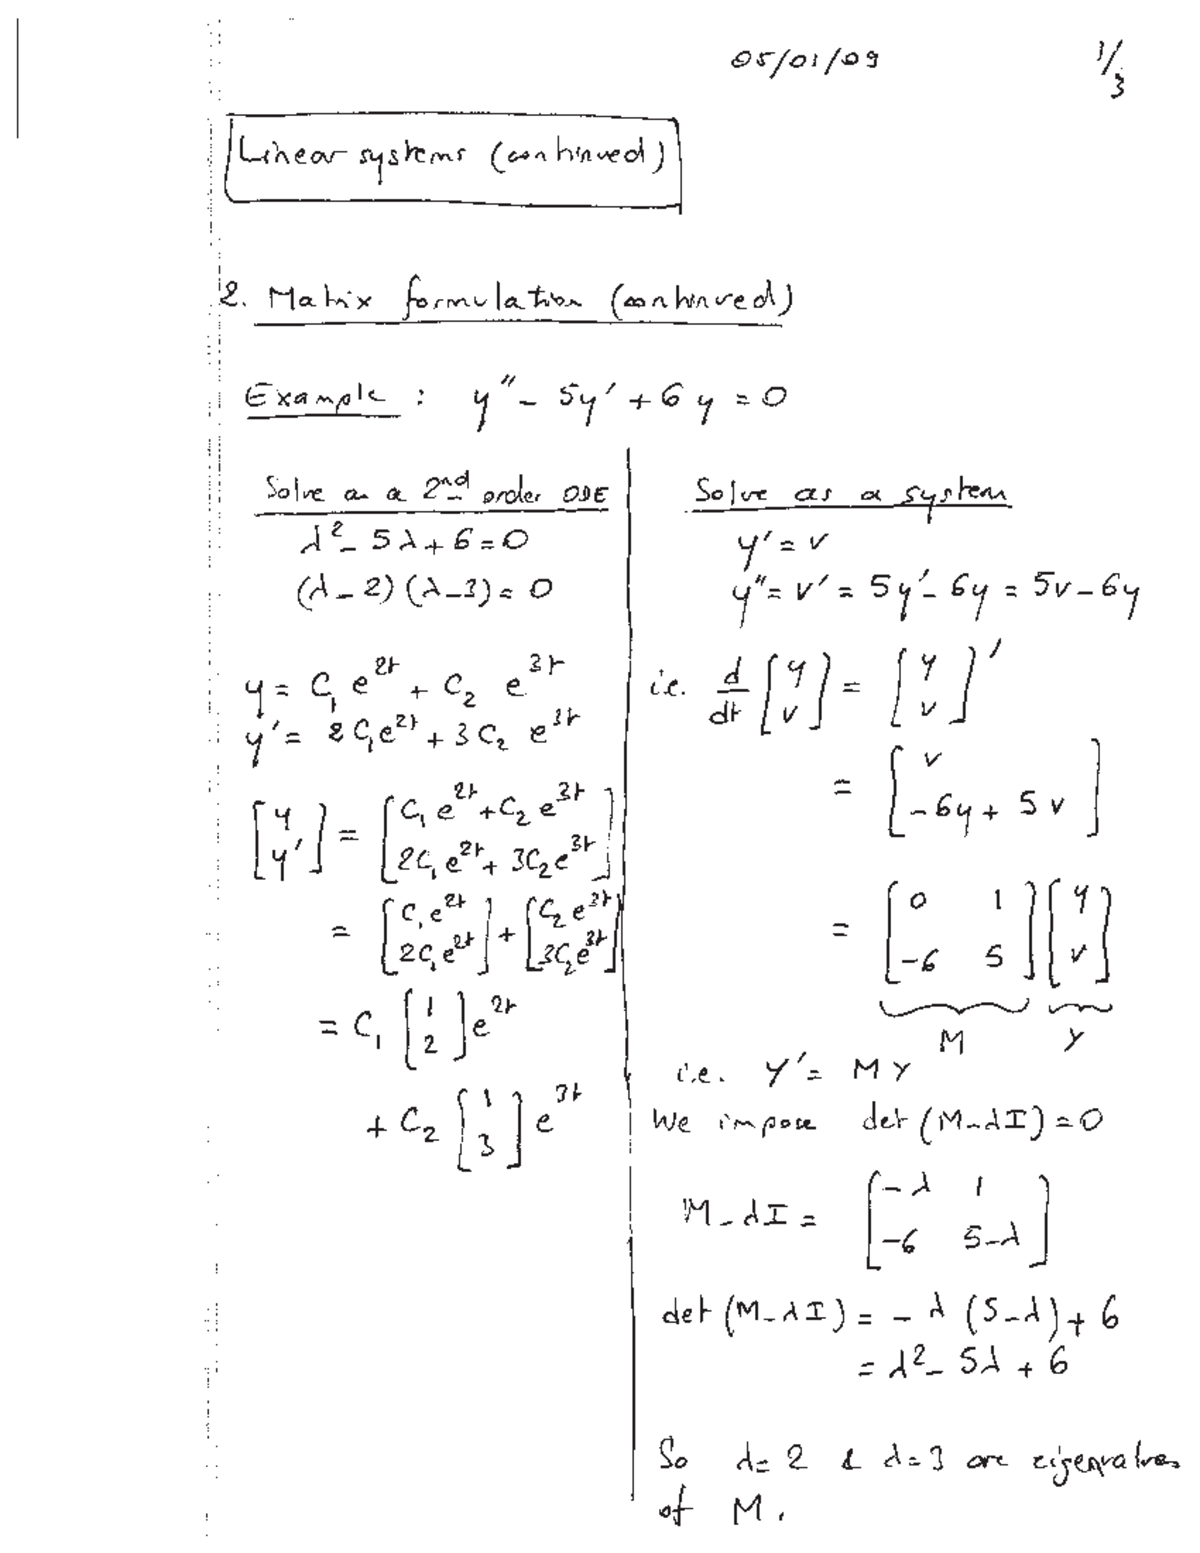 05/01/09
1/3
Linear systems (continued)
2. Matrix formulation (continued)
Example : y'' - 5y' + 6y = 0
Solve as a 2nd order ODE
λ² - 5λ + 6 = 0
(λ - 2)(λ - 3) = 0
y = C₁ e^{2t} + C₂ e^{3t}
y' = 2C₁e^{2t} + 3C₂ e^{3t}
[y; y'] = [C₁ e^{2t} + C₂ e^{3t}; 2C₁ e^{2t} + 3C₂ e^{3t}]
= [C₁ e^{2t}; 2C₁ e^{2t}] + [C₂ e^{3t}; 3C₂ e^{3t}]
= C₁ [1; 2] e^{2t}
+ C₂ [1; 3] e^{3t}
Solve as a system
y' = v
y'' = v' = 5y' - 6y = 5v - 6y
i.e. d/dt [y; v] = [y; v]'
= [v; -6y + 5v]
= [0 1; -6 5] [y; v]
M Y
i.e. Y' = MY
We impose det(M - λI) = 0
M - λI = [-λ 1; -6 5-λ]
det(M - λI) = -λ (5 - λ) + 6
= λ² - 5λ + 6
So λ = 2 & λ = 3 are eigenvalues
of M.